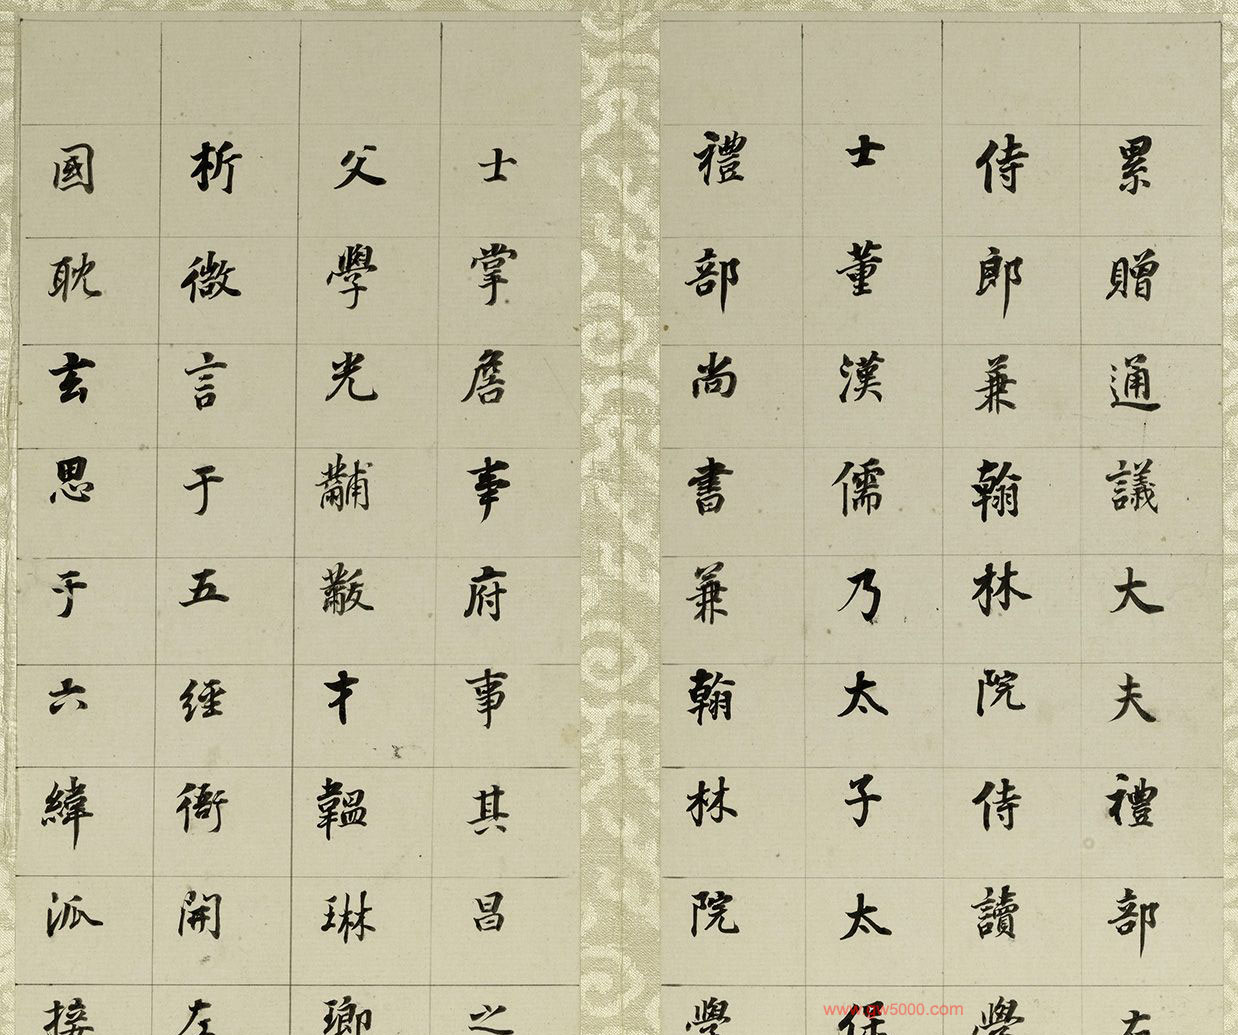 累贈通議大夫禮部右
侍郎兼翰林院侍讀學
士董漢儒乃太子太保
禮部尚書兼翰林院學
士掌詹事府事其昌之
父學光黼黻才韞琳瑯
析微言于五經衙開左
國耽玄思于六緯派接